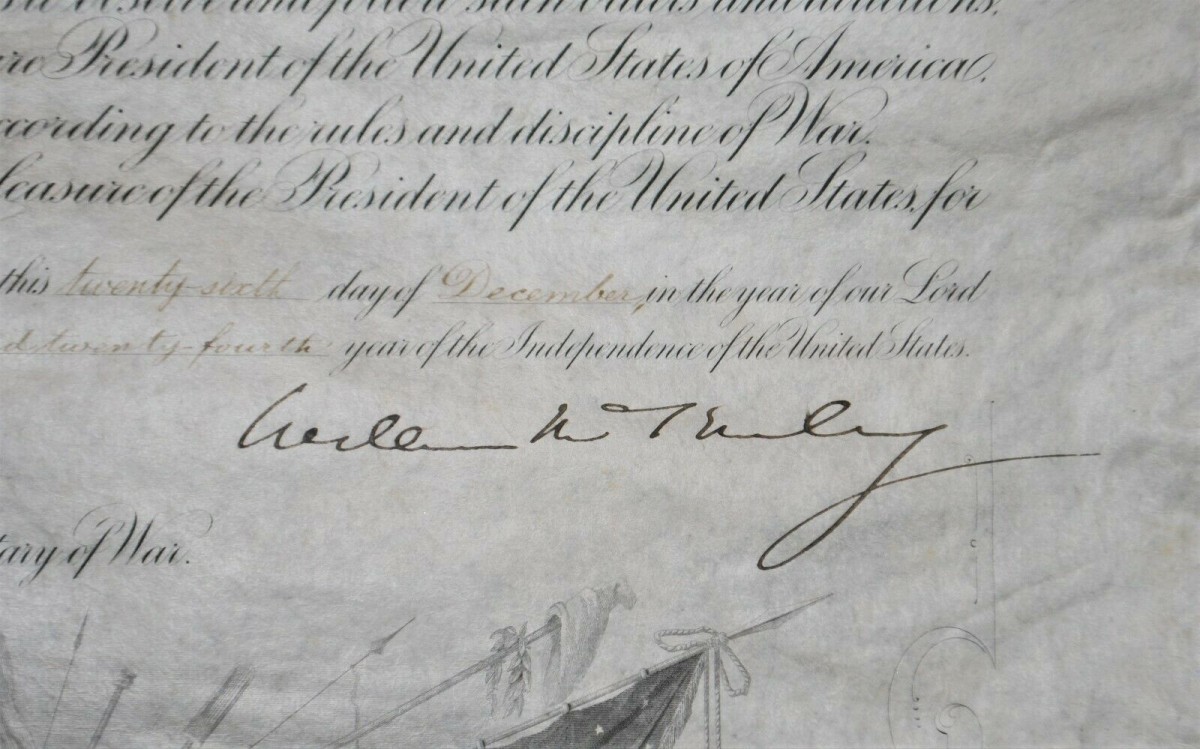 observe and follow such orders and directions,
President of the United States of America,
according to the rules and discipline of War.
pleasure of the President of the United States, for
this twenty-sixth day of December, in the year of our Lord
d twenty-fourth year of the Independence of the United States.
William McKinley
tary of War.